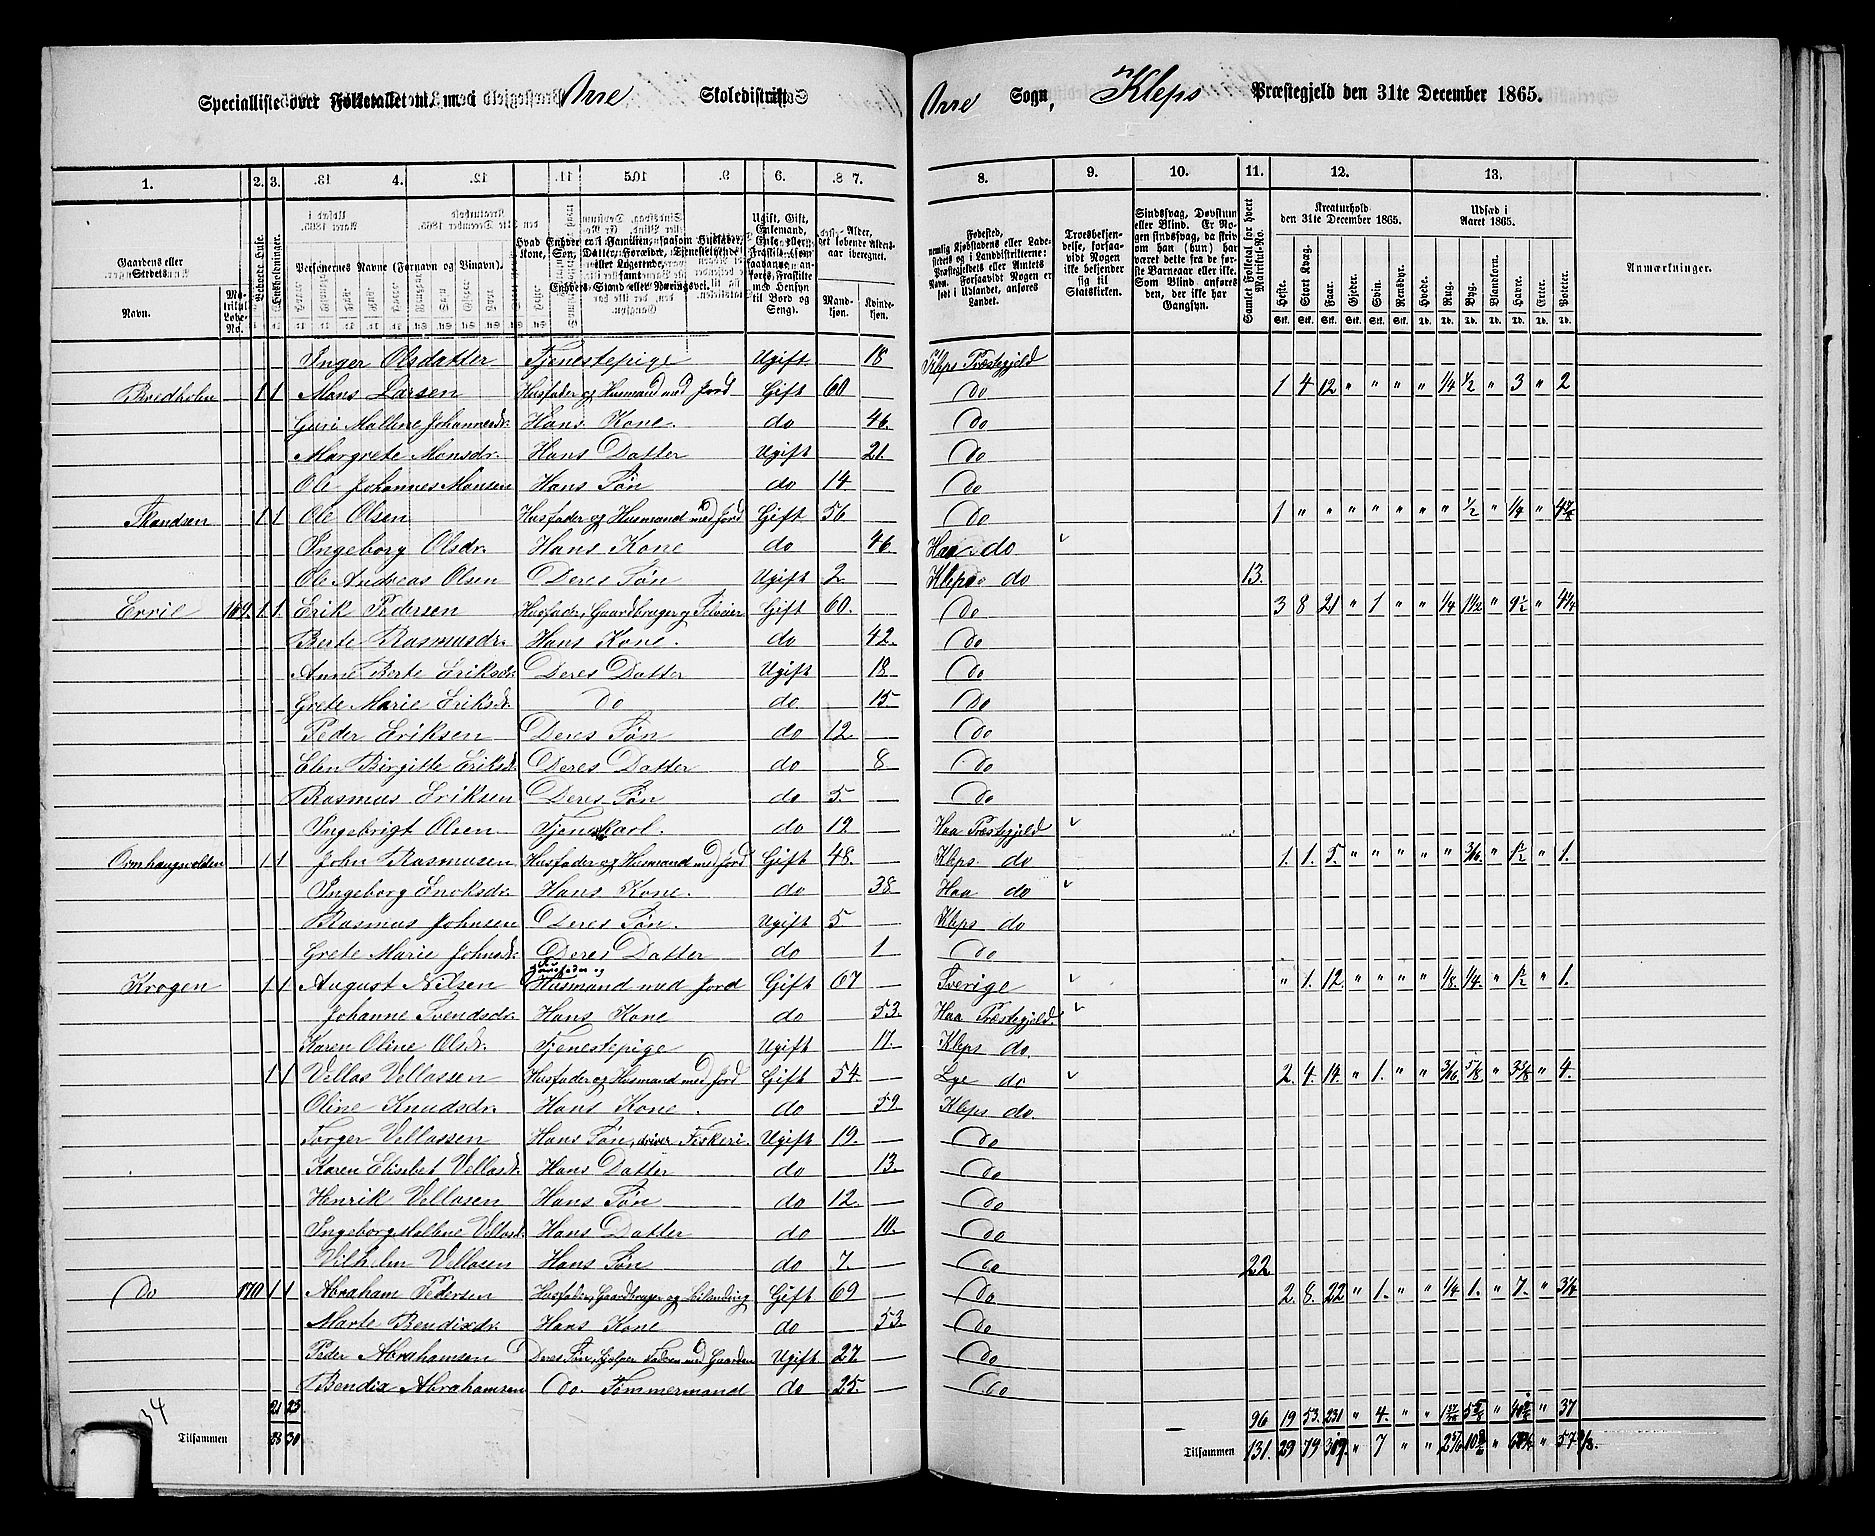 Specialliste over Folketallet m. m. i Orre Skoledistrikt
Orre Sogn, Kleps Præstegjeld den 31te December 1865.
1. 2. 3. 4. 5. 6. 7.
8. 9. 10. 11. 12. 13.
Gaardenes eller Stedets
Navn. Matrikul Løbe-No.
Beboede Huse.
Husholdninger.
Personernes Navne (Fornavn og Tilnavn).
Ugift, Gift,
Fødested,
Troesbekjendelse, forsaavidt Nogen ikke bekjender sig til Statskirken.
Sindssvag, Døvstum eller Blind.
Samlet Folketal for hvert Matrikul-No.
Kreaturhold den 31te December 1865.
Udsæd i Aaret 1865.
Anmærkninger.
Mandkjøn. Kvindekjøn.
Heste. Stort Kvæg. Faar. Gjeder. Sviin. Rensdyr. Hvede. Rug. Byg. Blandkorn. Havre. Erter. Poteter.
Inger Olsdatter Tjenestepige Ugift 18 Kleps Præstegjeld
Bredholm 1 1 Mons Larsen Husfader og Husmand med Jord Gift 60 Do 1 4 12 " " " " 1/4 1/2 " 3 " 2
Guri Malline Johannesdr. Hans Kone. do 46. Do
Margrete Monsdr. Hans Datter Ugift 21. Do
Ole Johannes Monsen Hans Søn do 14 Do
Skandsen 1 1 Ole Olsen Husfader og Husmand med Jord Gift 56 Do 1 " " " " " " " 1/2 " 1/4 "
Ingeborg Olsdr. Hans Kone do 46. Haa do
Ole Andreas Olsen Deres Søn Ugift 2. Kleps do 13.
Erik Pedersen Husfader, Gaardbruger og Selveier Gift 60. Do 3 8 21 " 1 " " 1/4 1 1/2 " 9 1/2 " 4 1/4
Berte Rasmusdr. Hans Kone. do 42. Do
Anne Berte Eriksdr. Deres Datter Ugift 18 Do
Grete Marie Eriksdr. Do do 15 Do
Peder Eriksen Deres Søn do 12 Do
Elen Birgitte Eriksdr. Deres Datter do 8 Do
Rasmus Eriksen Deres Søn do 5. Do
Ingebrigt Olsen. Tjenskarl. do 19 Haa Præstegjeld
1 1 John Rasmusen Husfader og Husmand med Jord Gift 48. Kleps do 1. 1. 5. " " " " " 3/16 " " 1.
Ingeborg Hans Kone. do 38 Haa do
Rasmus Johnsen Deres Søn. Ugift 5. Kleps do
Grete Marie Johnsdr. Deres Datter do 1 Do
Krogen 1 1 August Nilsen Husfader og Husmand med Jord Gift 67 Sverige " 1. 12. " " " " 1/8 1/4 " " 1.
Johanne Svendsdr. Hans Kone do 53. Haa Præstegjeld.
Karen Oline Olsdr. Tjenestepige Ugift 17. Kleps do.
1 1 Vellas Vellassen Husfader og Husmand med Jord Gift 54. Lye do 2. 4. 14. " 1. " " 3/16 5/8 " 3 1/8 " 4.
Oline Knudsdr. Hans Kone. do 59. Kleps do.
Torger Vellassen Hans Søn, driver Fiskeri. Ugift 19. Do
Karen Elisbet Vellasdr. Hans Datter do 13. Do
Henrik Vellasen Hans Søn do 12. Do
Ingeborg Malline Vellasd. Hans Datter do 10. Do
Vilhelm Vellasen Hans Søn do 7. Do 22
Do 170 1 1 Abraham Pedersen Husfader, Gaardbruger og Leilending Gift 69 Do 2. 8. 22 " 1. " " 1/4 1. " 7. " 3 1/4
Marte Bendixdr. Hans Kone do 53. Do
Peder Abrahamsen Deres Søn, hjelper Faderen med Gaarden Ugift 27. Do
Bendix Abrahamsen Do. Tømmermand do 25. Do
34
21 23 96 19 53. 231 " 4. " " " " 37
Tilsammen
Tilsammen 131. 29 79 " 7 " " " "